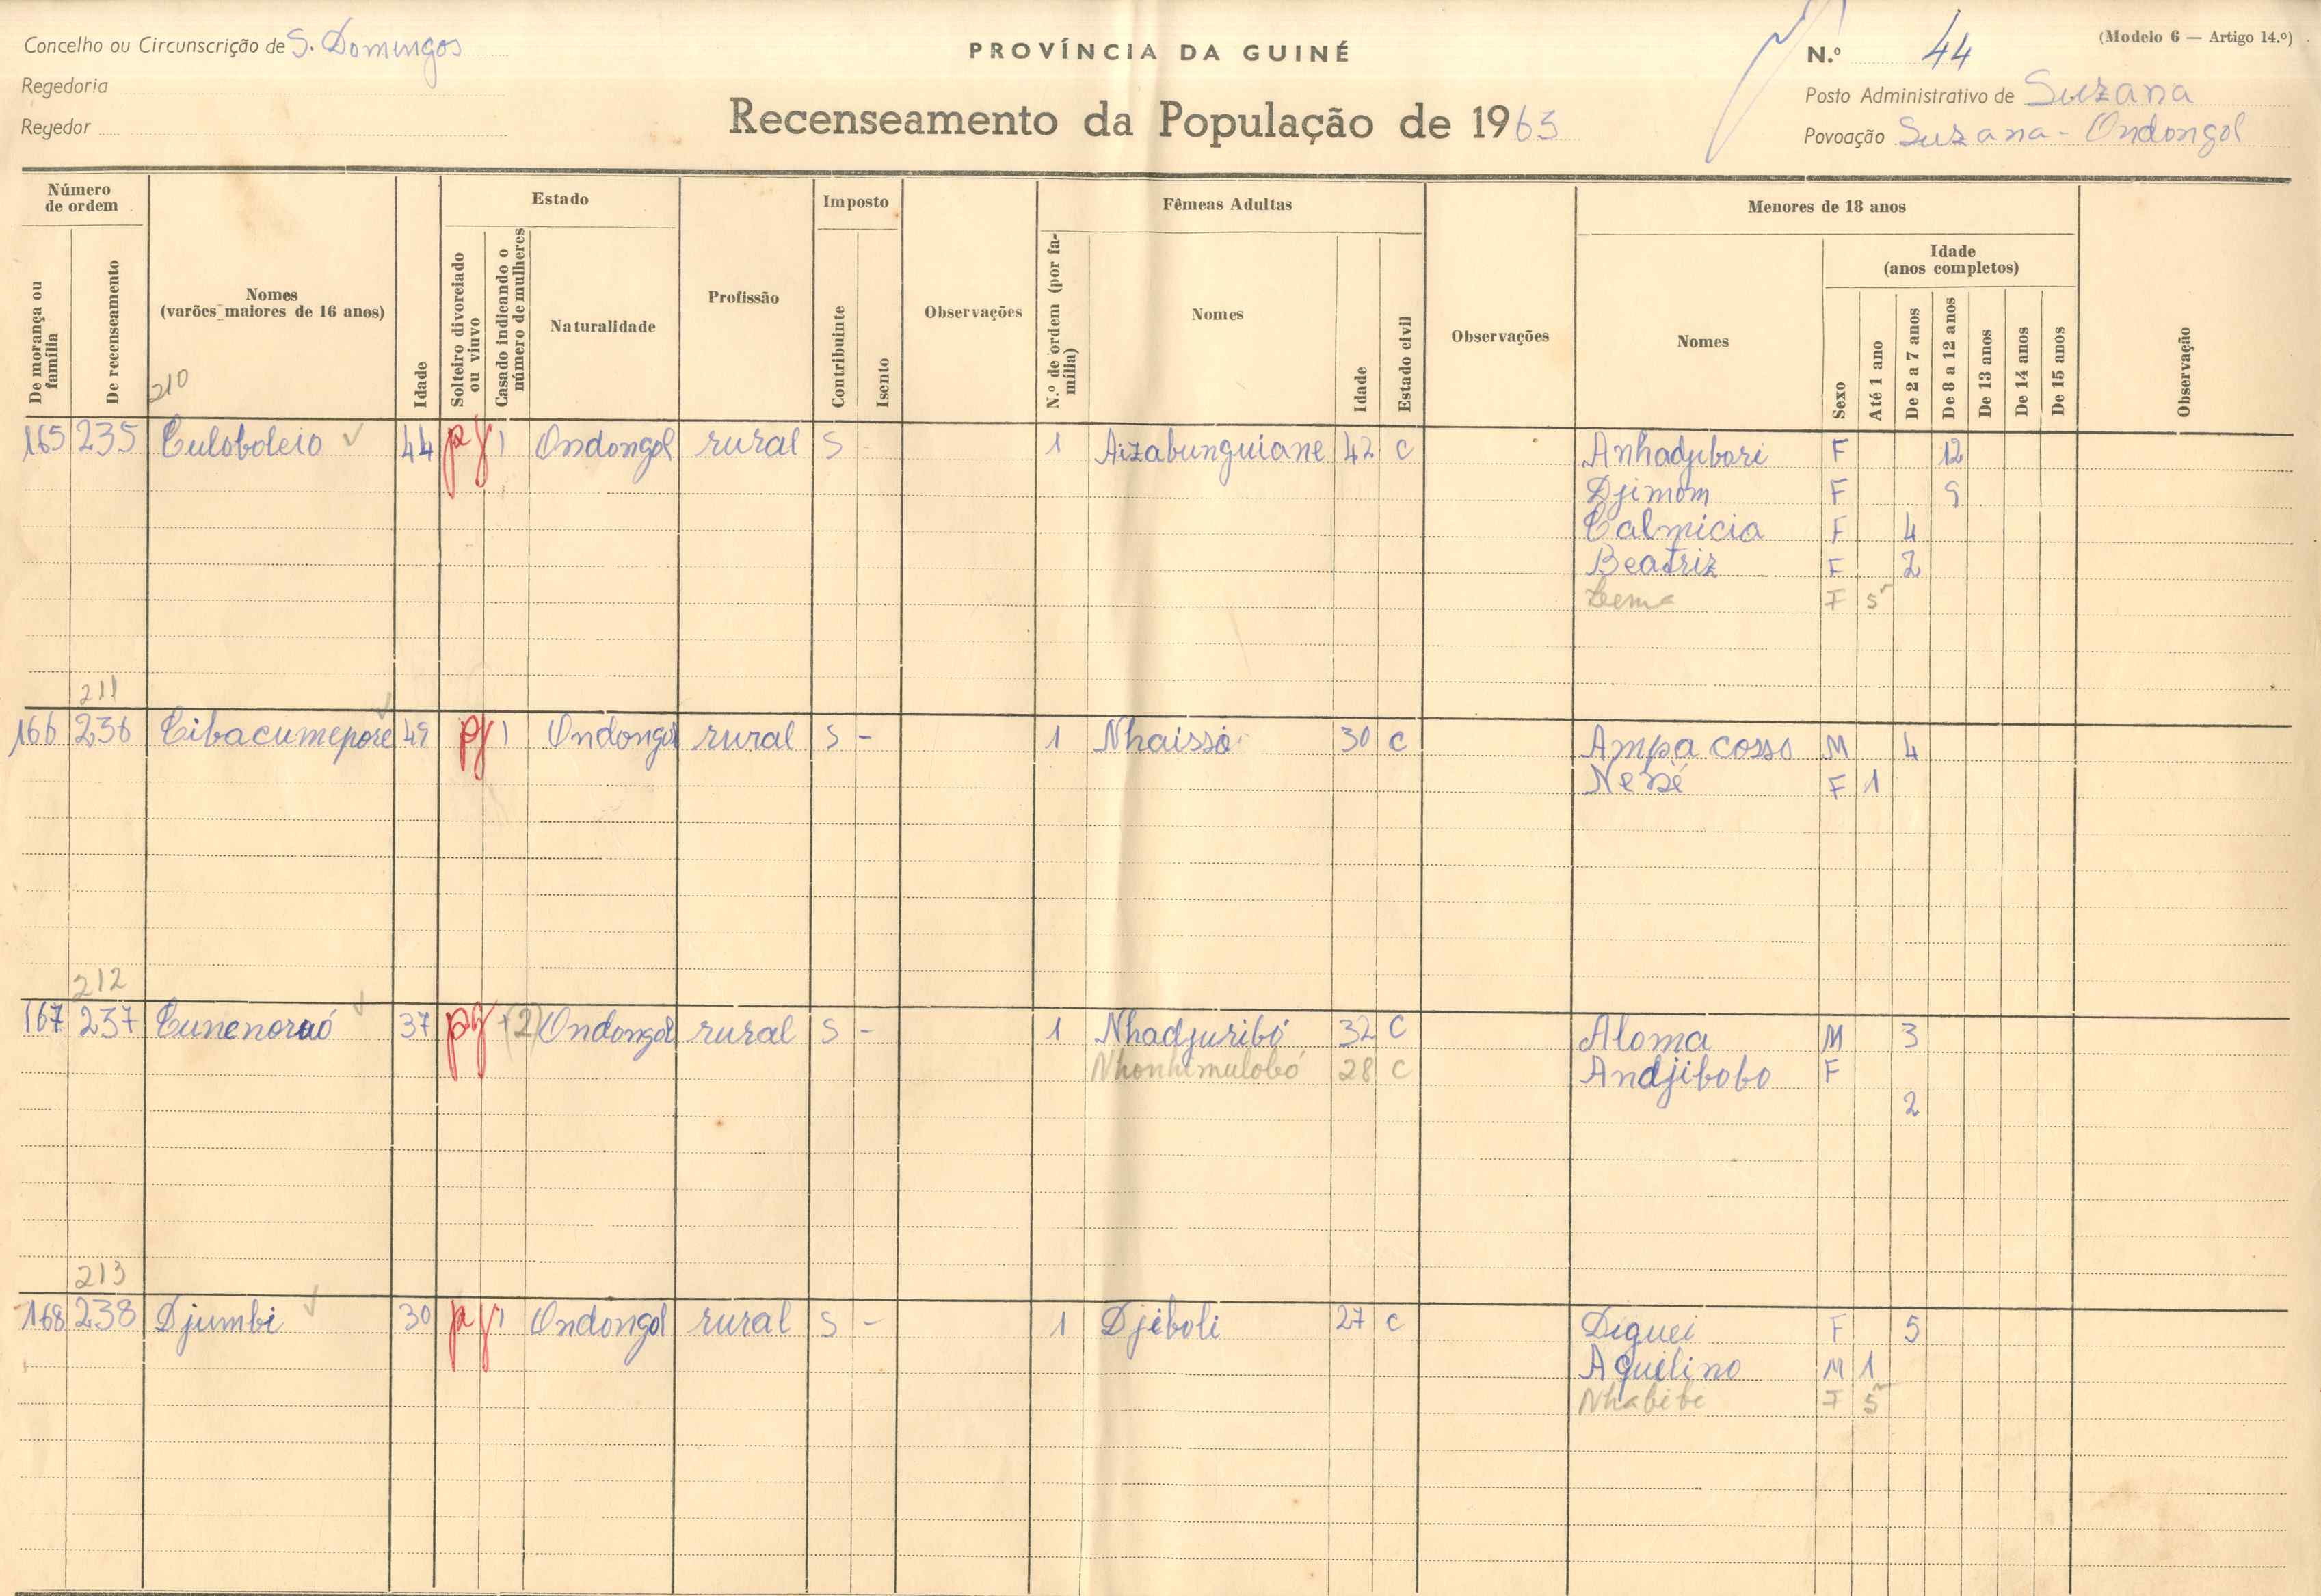 Concelho ou Circunscrição de S. Domingos
Regedoria
Regedor
PROVÍNCIA DA GUINÉ
Recenseamento da População de 1963
(Modelo 6 — Artigo 14.º)
N.º 44
Posto Administrativo de Suzana
Povoação Suzana - Ondongol
Número de ordem
De morança ou família
De recenseamento
Nomes
(varões maiores de 16 anos)
Idade
Estado
Solteiro divorciado ou viuvo
Casado indicando o número de mulheres
Naturalidade
Profissão
Imposto
Contribuinte
Isento
Observações
Fêmeas Adultas
N.º de ordem (por família)
Nomes
Idade
Estado civil
Observações
Menores de 18 anos
Nomes
Sexo
Idade
(anos completos)
Até 1 ano
De 2 a 7 anos
De 8 a 12 anos
De 13 anos
De 14 anos
De 15 anos
Observação
210
165 235 Culoboleio 44 1 Ondongol rural S - 1 Aizabunguiane 42 C Anhadjibori F 12
Djimom F 9
Calmicia F 4
Beatriz F 2
F 5
211
166 236 Cibacumepore 49 1 Ondongol rural S - 1 Nhaisso 30 C Ampa cosso M 4
F 1
212
167 237 37 (2) Ondongol rural S - 1 Nhadjuribó 32 C Aloma M 3
Nhonhimulobó 28 C Andjibobo F
2
213
168 238 Djumbi 30 1 Ondongol rural S - 1 Djiboli 27 C Diguei F 5
Aquilino M 1
Nhabibi F 5